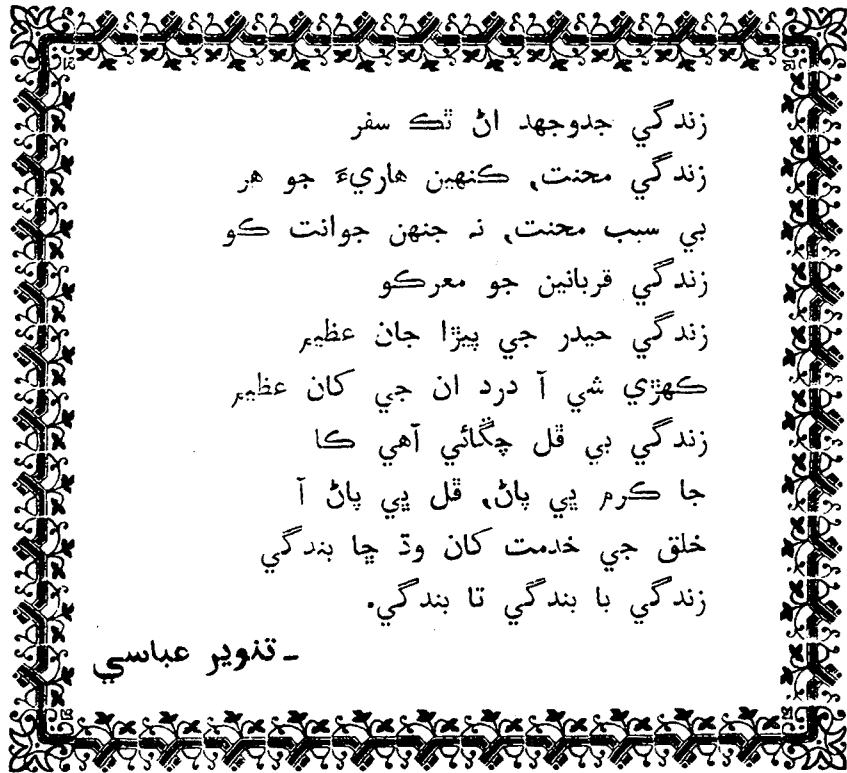 زندگي جدوجهد اڻ ٿڪ سفر
زندگي محنت, ڪنهين هاريءَ جو هر
بي سبب محنت, نہ جنهن جوانت ڪو
زندگي قربانين جو معرڪو
زندگي حيدر جي پيڙا جان عظيم
ڪهڙي شي آ درد ان جي کان عظيم
زندگي بي ڦل چڱائي آهي ڪا
جا ڪرم ڀي پاڻ, ڦل ڀي پاڻ آ
خلق جي خدمت کان وڌ ڇا بندگي
زندگي با بندگي تا بندگي.
- تنوير عباسي